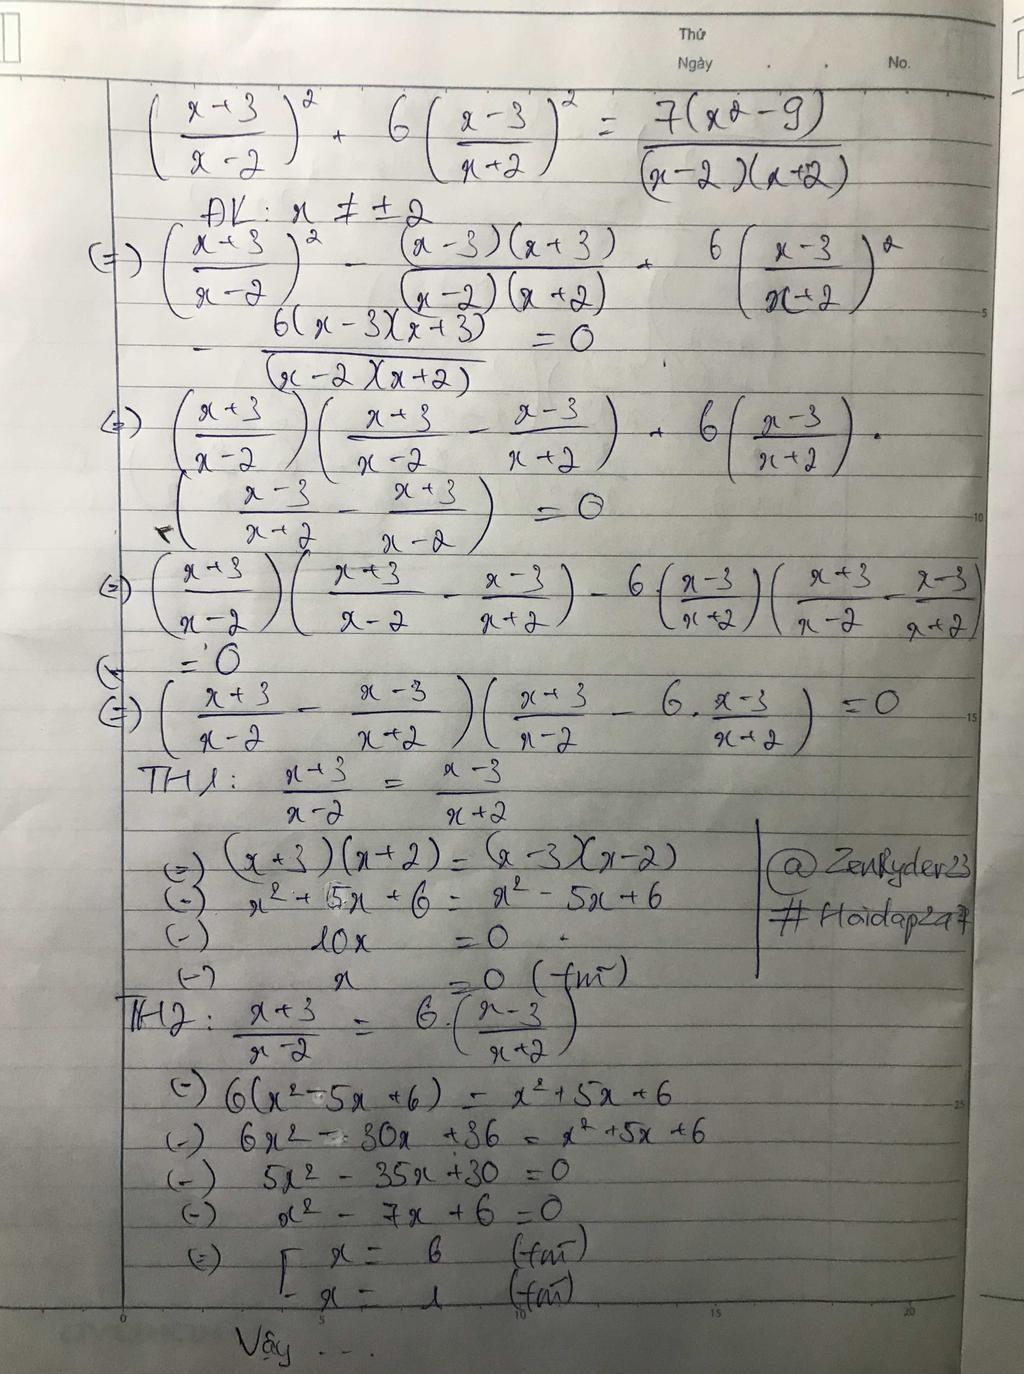 Thứ
Ngày . . No.
(x+3/x-2)² + 6(x-3/x+2)² = 7(x2-9)/(x-2)(x+2)
ĐK: x ≠ ±2
(=) (x+3/x-2)² - (x-3)(x+3)/(x-2)(x+2) + 6(x-3/x+2)²
- 6(x-3)(x+3)/(x-2)(x+2) = 0
(=) (x+3/x-2)(x+3/x-2 - x-3/x+2) + 6(x-3/x+2).
(x-3/x+2 - x+3/x-2) = 0
(=) (x+3/x-2)(x+3/x-2 - x-3/x+2) - 6.(x-3/x+2)(x+3/x-2 - x-3/x+2)
= 0
(=) (x+3/x-2 - x-3/x+2)(x+3/x-2 - 6. x-3/x+2) = 0
TH1: x+3/x-2 = x-3/x+2
(=) (x+3)(x+2) = (x-3)(x-2)
(-) x² + 5x + 6 = x² - 5x + 6
(-) 10x = 0
(-) x = 0 (tm)
@ZenRyder23
#Hoidap247
TH2: x+3/x-2 = 6.(x-3/x+2)
(-) 6(x²-5x+6) = x²+5x+6
(-) 6x² - 30x + 36 = x² + 5x + 6
(-) 5x² - 35x + 30 = 0
(-) x² - 7x + 6 = 0
(=) [ x = 6 (tm)
x = 1 (tm)
Vậy ...
5
10
15
25
0 5 10 15 20